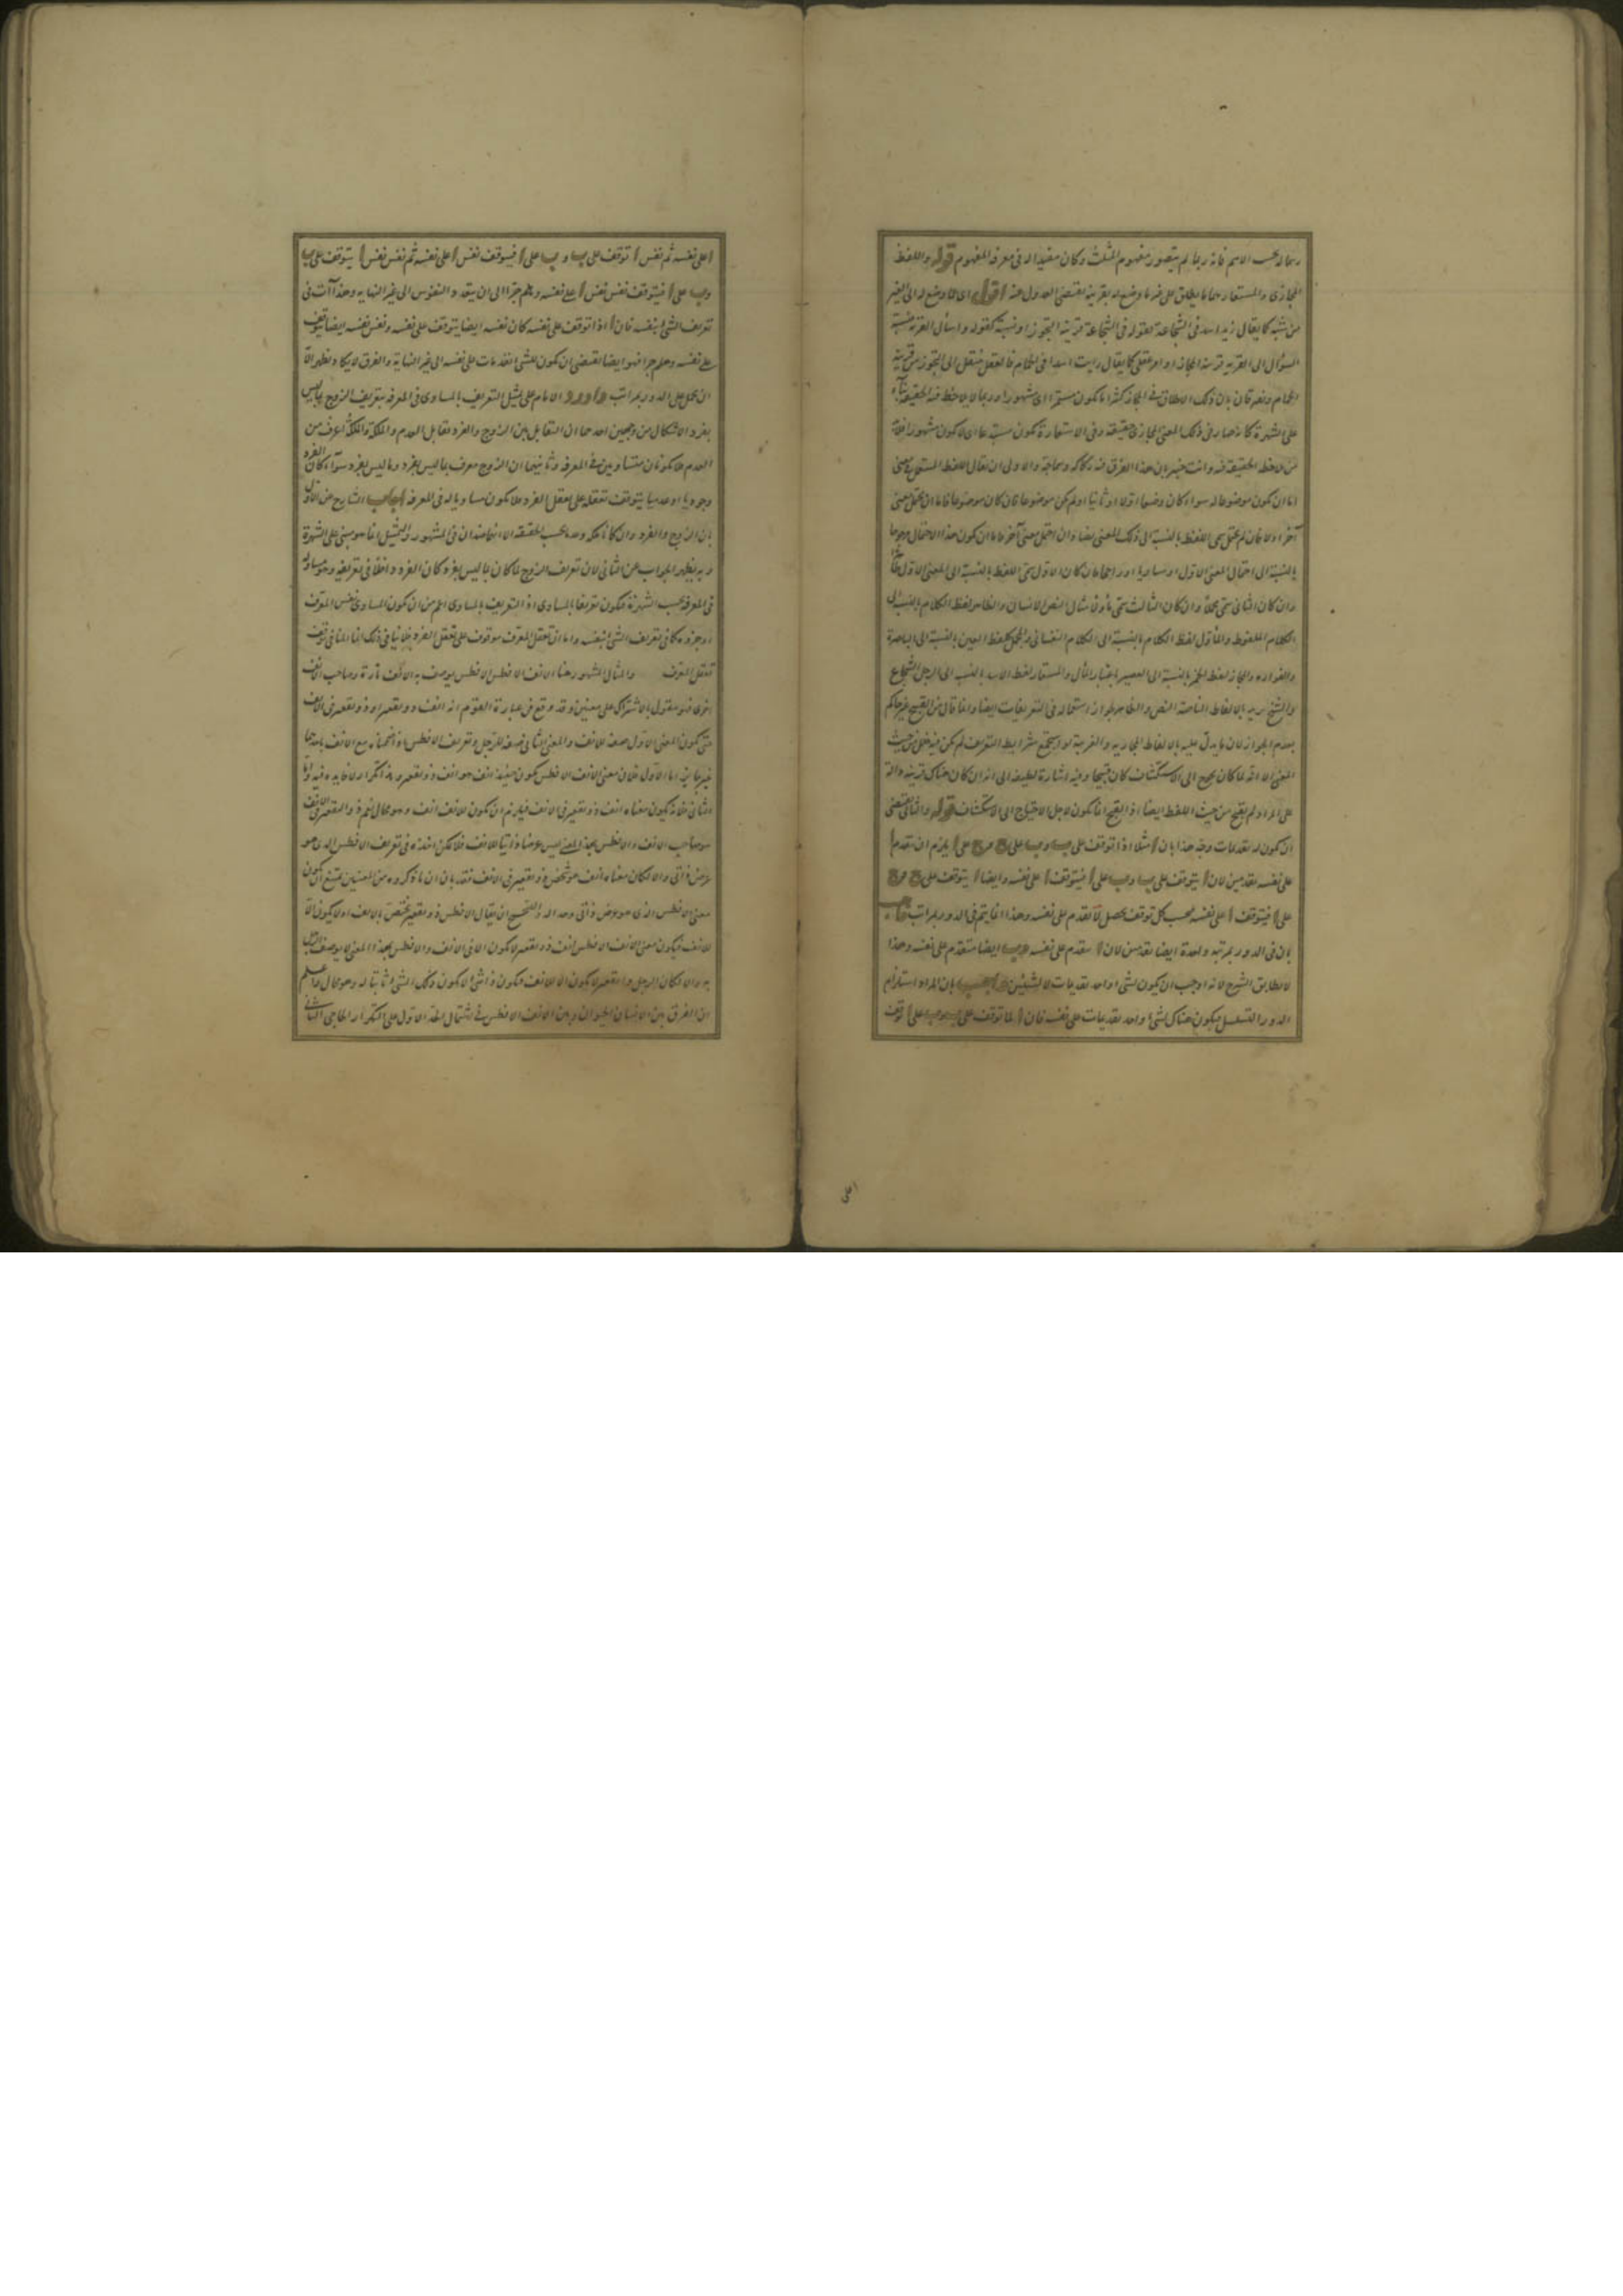 رسما له بحسب الاسم فانه ربما لم يتصور مفهوم المثلث وكان مفيدا له فى معرفة المفهوم قوله واللفظ
المجازى والمستعار هما ما يطلق على غير ما وضع له بقرينة تقتضى العدول عنه اقول اى عما وضع له الى الغير
من شبه كما يقال زيد اسد فى الشجاعة فقوله فى الشجاعة قرينة التجوز او نسبة كقوله واسأل القرية فنسبة
السؤال الى القرية قرينة المجاز او امر عقلى كما يقال رايت اسدا فى الحمام فالعقل ينتقل الى التجوز من قرينة
الحمام ويفرقان بان ذلك الاطلاق فى المجاز كثيرا ما يكون مستمرا اى مشهورا وربما لا يلاحظ فيه الحقيقة بناء
على الشهرة كانه صار فى ذلك المعنى المجازى حقيقة وفى الاستعارة يكون مستدعا اى لا يكون مشهورا فلابد
من ملاحظة الحقيقة فيه وانت خبير بان هذا الفرق فيه ركاكة وسماجة والاولى ان يقال اللفظ المستعمل فى معنى
اما ان يكون موضوعا له سواء كان وضعا اولا او ثانيا او لم يكن موضوعا فان كان موضوعا فاما ان يحتمل معنى
آخر اولا فان لم يحتمل سمى اللفظ بالنسبة الى ذلك المعنى نصا وان احتمل معنى آخر فاما ان يكون هذا الاحتمال مرجوحا
بالنسبة الى احتمال المعنى الاول او مساويا او راجحا فان كان الاول سمى اللفظ بالنسبة الى المعنى الاول ظاهرا
وان كان الثانى سمى مجملا وان كان الثالث سمى مأولا مثال النص الانسان والظاهر لفظ الكلام بالنسبة الى
الكلام الملفوظ والمأول لفظ الكلام بالنسبة الى الكلام النفسانى والمجمل كلفظ العين بالنسبة الى الباصرة
والفوارة والمجاز لفظ الخمر بالنسبة الى العصير باعتبار المآل والمستعار لفظ الاسد بالنسبة الى الرجل الشجاع
والشيخ يريد بالالفاظ الناصة النص والظاهر لجواز استعماله فى التعريفات ايضا وانما قال من القبيح غير حاكم
بعدم الجواز لان ما يدل عليه بالالفاظ المجازية والغريبة لو استجمع شرايط التعريف لم يكن فيه خلل من حيث
المعنى الا انه لما كان يحوج الى الاستكشاف كان قبيحا وفيه اشارة لطيفة الى انه ان كان هناك قرينة دالة
على المراد لم يقبح من حيث اللفظ ايضا اذ القبح انما يكون لاجل الاحتياج الى الاستكشاف قوله والثانى يقتضى
ان يكون له تقدمات وجه هذا بان ا مثلا اذا توقف على ب وب على ج وج على ا يلزم ان تقدم ا
على نفسه تقدمين لان ا يتوقف على ب وب على ا فيتوقف ا على نفسه وايضا ا يتوقف على ج وج
على ا فيتوقف ا على نفسه بحسب كل توقف يحصل له تقدم على نفسه وهذا انما يتم فى الدور بمراتب
بان فى الدور بمرتبة واحدة ايضا تقدمين لان ا متقدم على نفسه وب ايضا متقدم على نفسه وهذا
لا يطابق الشرح لانه اوجب ان يكون لشئ واحد تقدمات لا لشيئين بان المراد استلزام
الدور التسلسل فيكون هناك لشئ واحد تقدمات على نفسه فان ا لما توقف على ب وب على ا توقف
اعلى
ا على نفسه ثم نفس ا توقف على ب وب على ا فيتوقف نفس ا على نفسه ثم نفس نفس ا يتوقف على ب
وب على ا فيتوقف نفس نفس ا على نفسه وهلم جرا الى ان يتعدد النفوس الى غير النهاية وهذا آت فى
تعريف الشئ بنفسه فان ا اذا توقف على نفسه كان نفسه ايضا يتوقف على نفسه ونفس نفسه ايضا يتوقف
على نفسه وهلم جرا فهو ايضا يقتضى ان يكون للشئ تقدمات على نفسه الى غير النهاية والفرق لا يكاد يظهر الا
ان يحمل على الدور بمراتب واورد الامام على تمثيل التعريف بالمساوى فى المعرفة بتعريف الزوج بما ليس
بفرد الاشكال من وجهين احدهما ان التقابل بين الزوج والفرد تقابل العدم والملكة والملكة اعرف من
العدم فلا يكونان متساويين فى المعرفة وثانيهما ان الزوج معرف بما ليس بفرد وما ليس بفرد سواء كان الفرد
وجوديا او عدميا يتوقف تعقله على تعقل الفرد فلا يكون مساويا له فى المعرفة اجاب الشارح عن الاول
بان الزوج والفرد وان كانا ملكة وعدما بحسب الحقيقة الا انهما ضدان فى المشهور والتمثيل انما هو مبنى على الشهرة
وبه يظهر الجواب عن الثانى لان تعريف الزوج لما كان بما ليس بفرد كان الفرد داخلا فى تعريفه وهو مساو له
فى المعرفة بحسب الشهرة فيكون تعريفا بالمساوى اذ التعريف بالمساوى اعم من ان يكون المساوى نفس المعرف
او جزءه كما فى تعريف الشئ بنفسه واما ان تعقل المعرف موقوف على تعقل الفرد فلا ينافى ذلك انما المنافى توقف
تعقل المعرف والمثال المشهور هنا الانف الافطس الافطس يوصف به الانف تارة وصاحب الانف
اخرى فهو مقول بالاشتراك على معنيين وقد وقع فى عبارة القوم انه انف ذو تقعير او ذو تقعير فى الانف
حتى يكون المعنى الاول صفة للانف والمعنى الثانى صفة للرجل وتعريف الافطس مع الانف باحدهما
غير جايز اما الاول فلان معنى الانف الافطس يكون حينئذ انف هو انف ذو تقعير وهذا تكرار لا فايدة فيه واما
الثانى فلانه يكون معناه انف ذو تقعير فى الانف فيلزم ان يكون للانف انف وهو محال ثم ذو التقعير فى الانف
هو صاحب الانف والافطس بهذا المعنى ليس عرضا ذاتيا للانف فلا يمكن اخذه فى تعريف الافطس الذى هو
عرض ذاتى والا لكان معناه انف هو شخص ذو تقعير فى الانف فقد بان ان ما ذكروه من المعنيين يمتنع ان يكون
معنى الافطس الذى هو عرض ذاتى وحد له والصحيح ان يقال الافطس ذو تقعير مختص بالانف او لا يكون الا
للانف فيكون معنى الانف الافطس انف ذو تقعير لا يكون الا فى الانف والافطس بهذا المعنى لا يوصف الرجل
به والا لكان الرجل ذا تقعير لا يكون الا للانف فيكون ذا شئ لا يكون ذلك الشئ ثابتا له وهو محال واعلم
ان الفرق بين الانسان الحيوان وبين الانف الافطس فى اشتمال الحد الاول على التكرار الحاجى الثانى